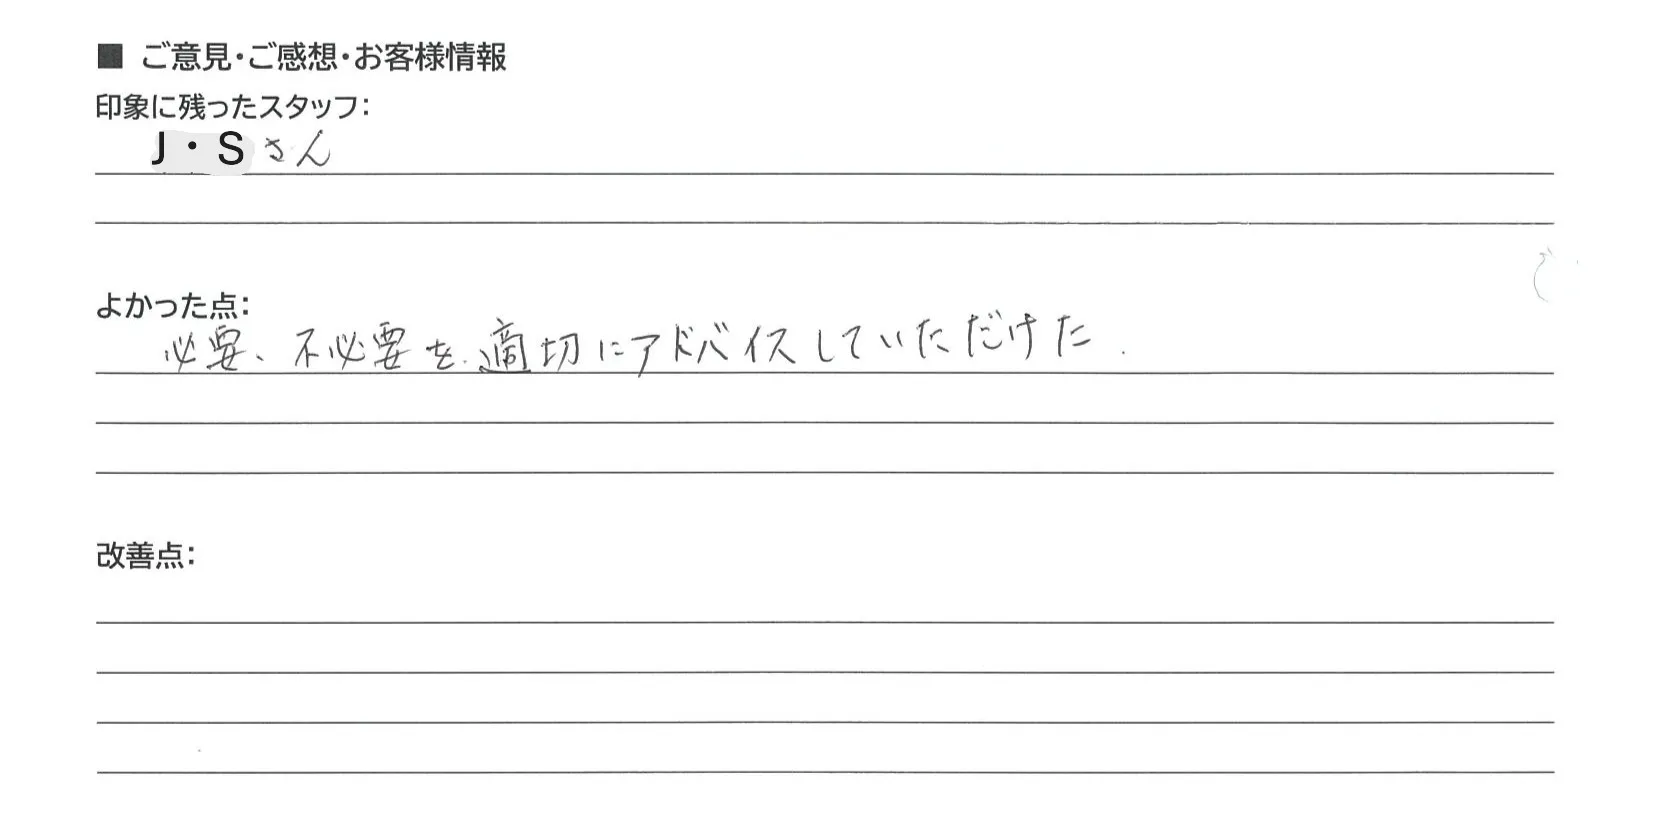 ■ ご意見・ご感想・お客様情報
印象に残ったスタッフ：
J・Sさん
よかった点：
必要、不必要を適切にアドバイスしていただけた.
改善点：